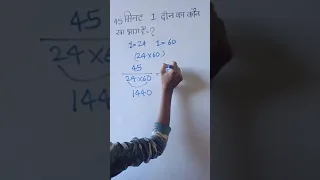 45 मिनट 1 दीन का कौन
सा भाग है.?
1=24 1=60
(24×60)
45
24×60
=
1440